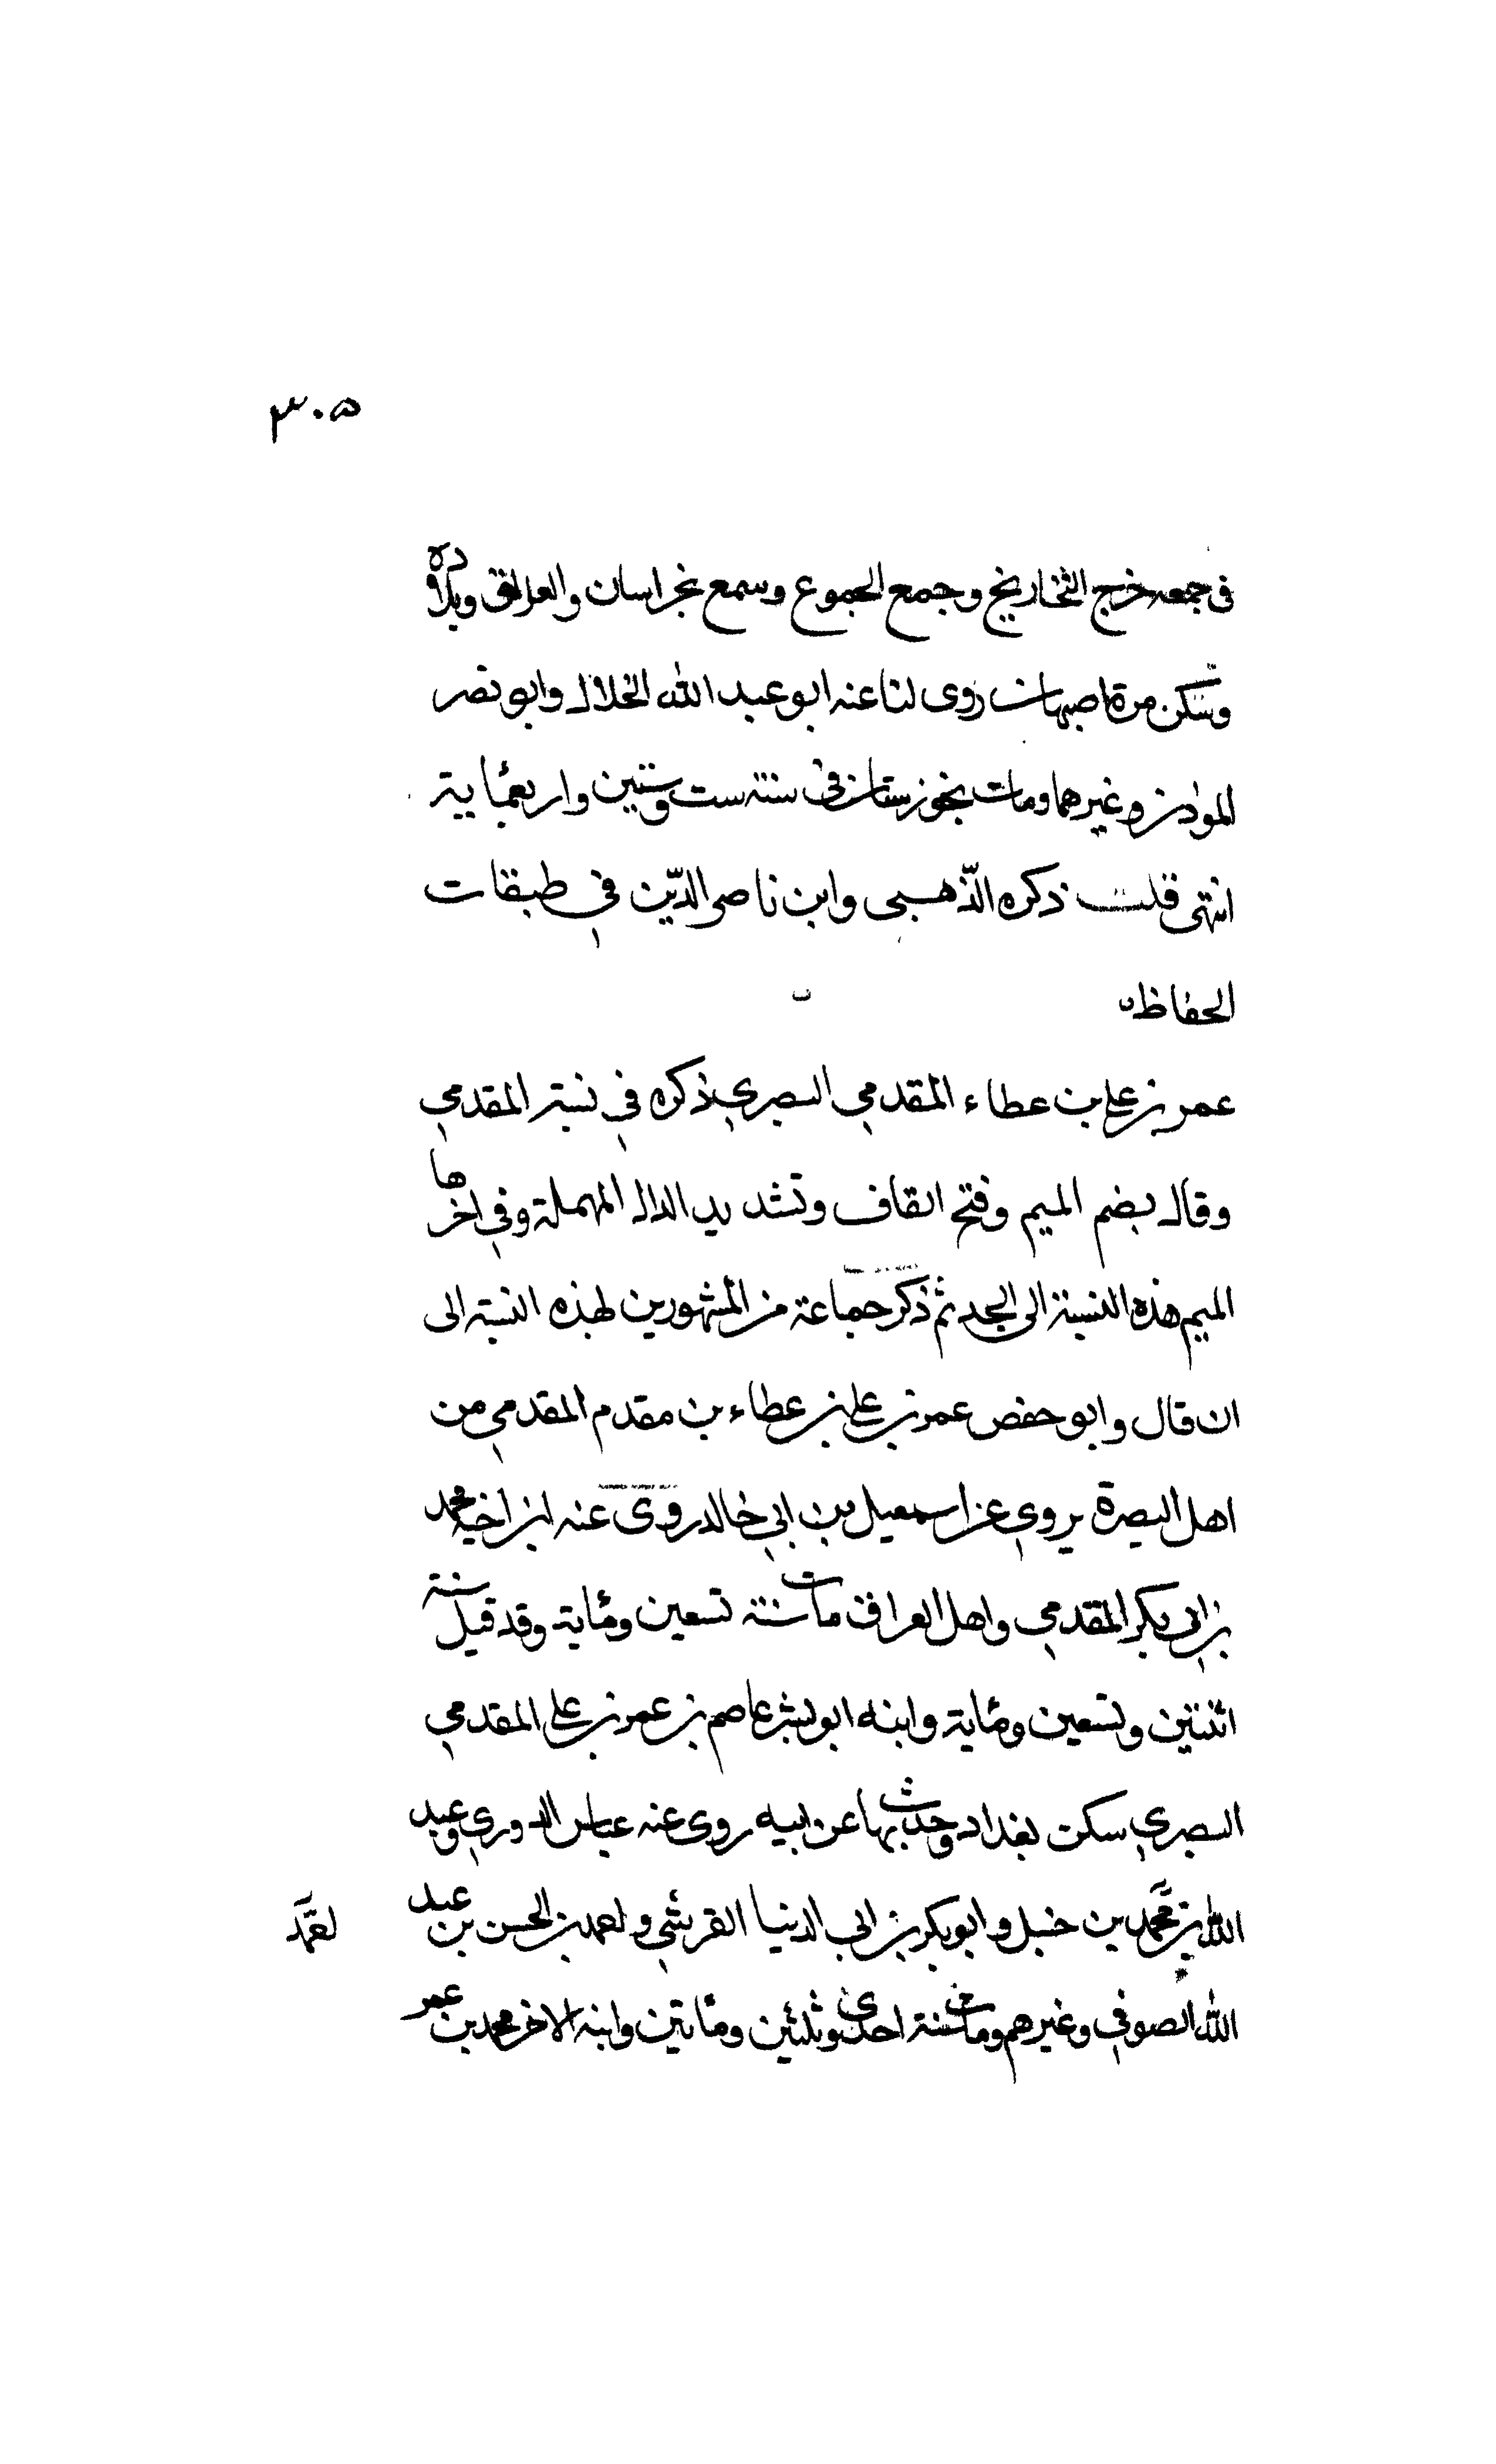 ٣٠٥
فى جمعه خرج التخاريخ وجمع الجموع وسمع بخراسان والعراق وبلاده
وسكن مرة اصبهان روى لنا عنه ابو عبد الله الخلال وابو نصر
المواذن وغيرهما ومات بخوزستان فى سنة ست وستين واربعمائة
انتهى قلت ذكره الذّهبى وابن ناصر الدّين في طبقات
الحفاظ
عمر بن على بن عطاء المقدمي البصري ذكره في نسبة المقدمي
وقال بضم الميم وفتح القاف وتشديد الدال المهملة وفي اخرها
الميم هذه النسبة الى الجد ثم ذكر جماعة من المشهورين لهذه النسبة الى
ان قال وابو حفص عمر بن على بن عطاء بن مقدم المقدمي من
اهل البصرة يروي عن اسمعيل بن ابي خالد روى عنه ابن اخيه محمد
بن ابى بكر المقدمي واهل العراق مات سنة تسعين ومائة وقد قيل سنة
اثنتين وتسعين ومائة وابنه ابو بشر عاصم بن عمر بن على المقدمي
البصري سكن بغداد وحدث بها عن ابيه روى عنه عباس الدوري وعبد
الله بن محمد بن حنبل وابو بكر بن ابى الدنيا القرشي واحمد بن الحسن بن عبد
احمد
الله الصوفي وغيرهم ومات سنة احدى وثلثين ومائتين وابنه الاخر محمد بن عمر